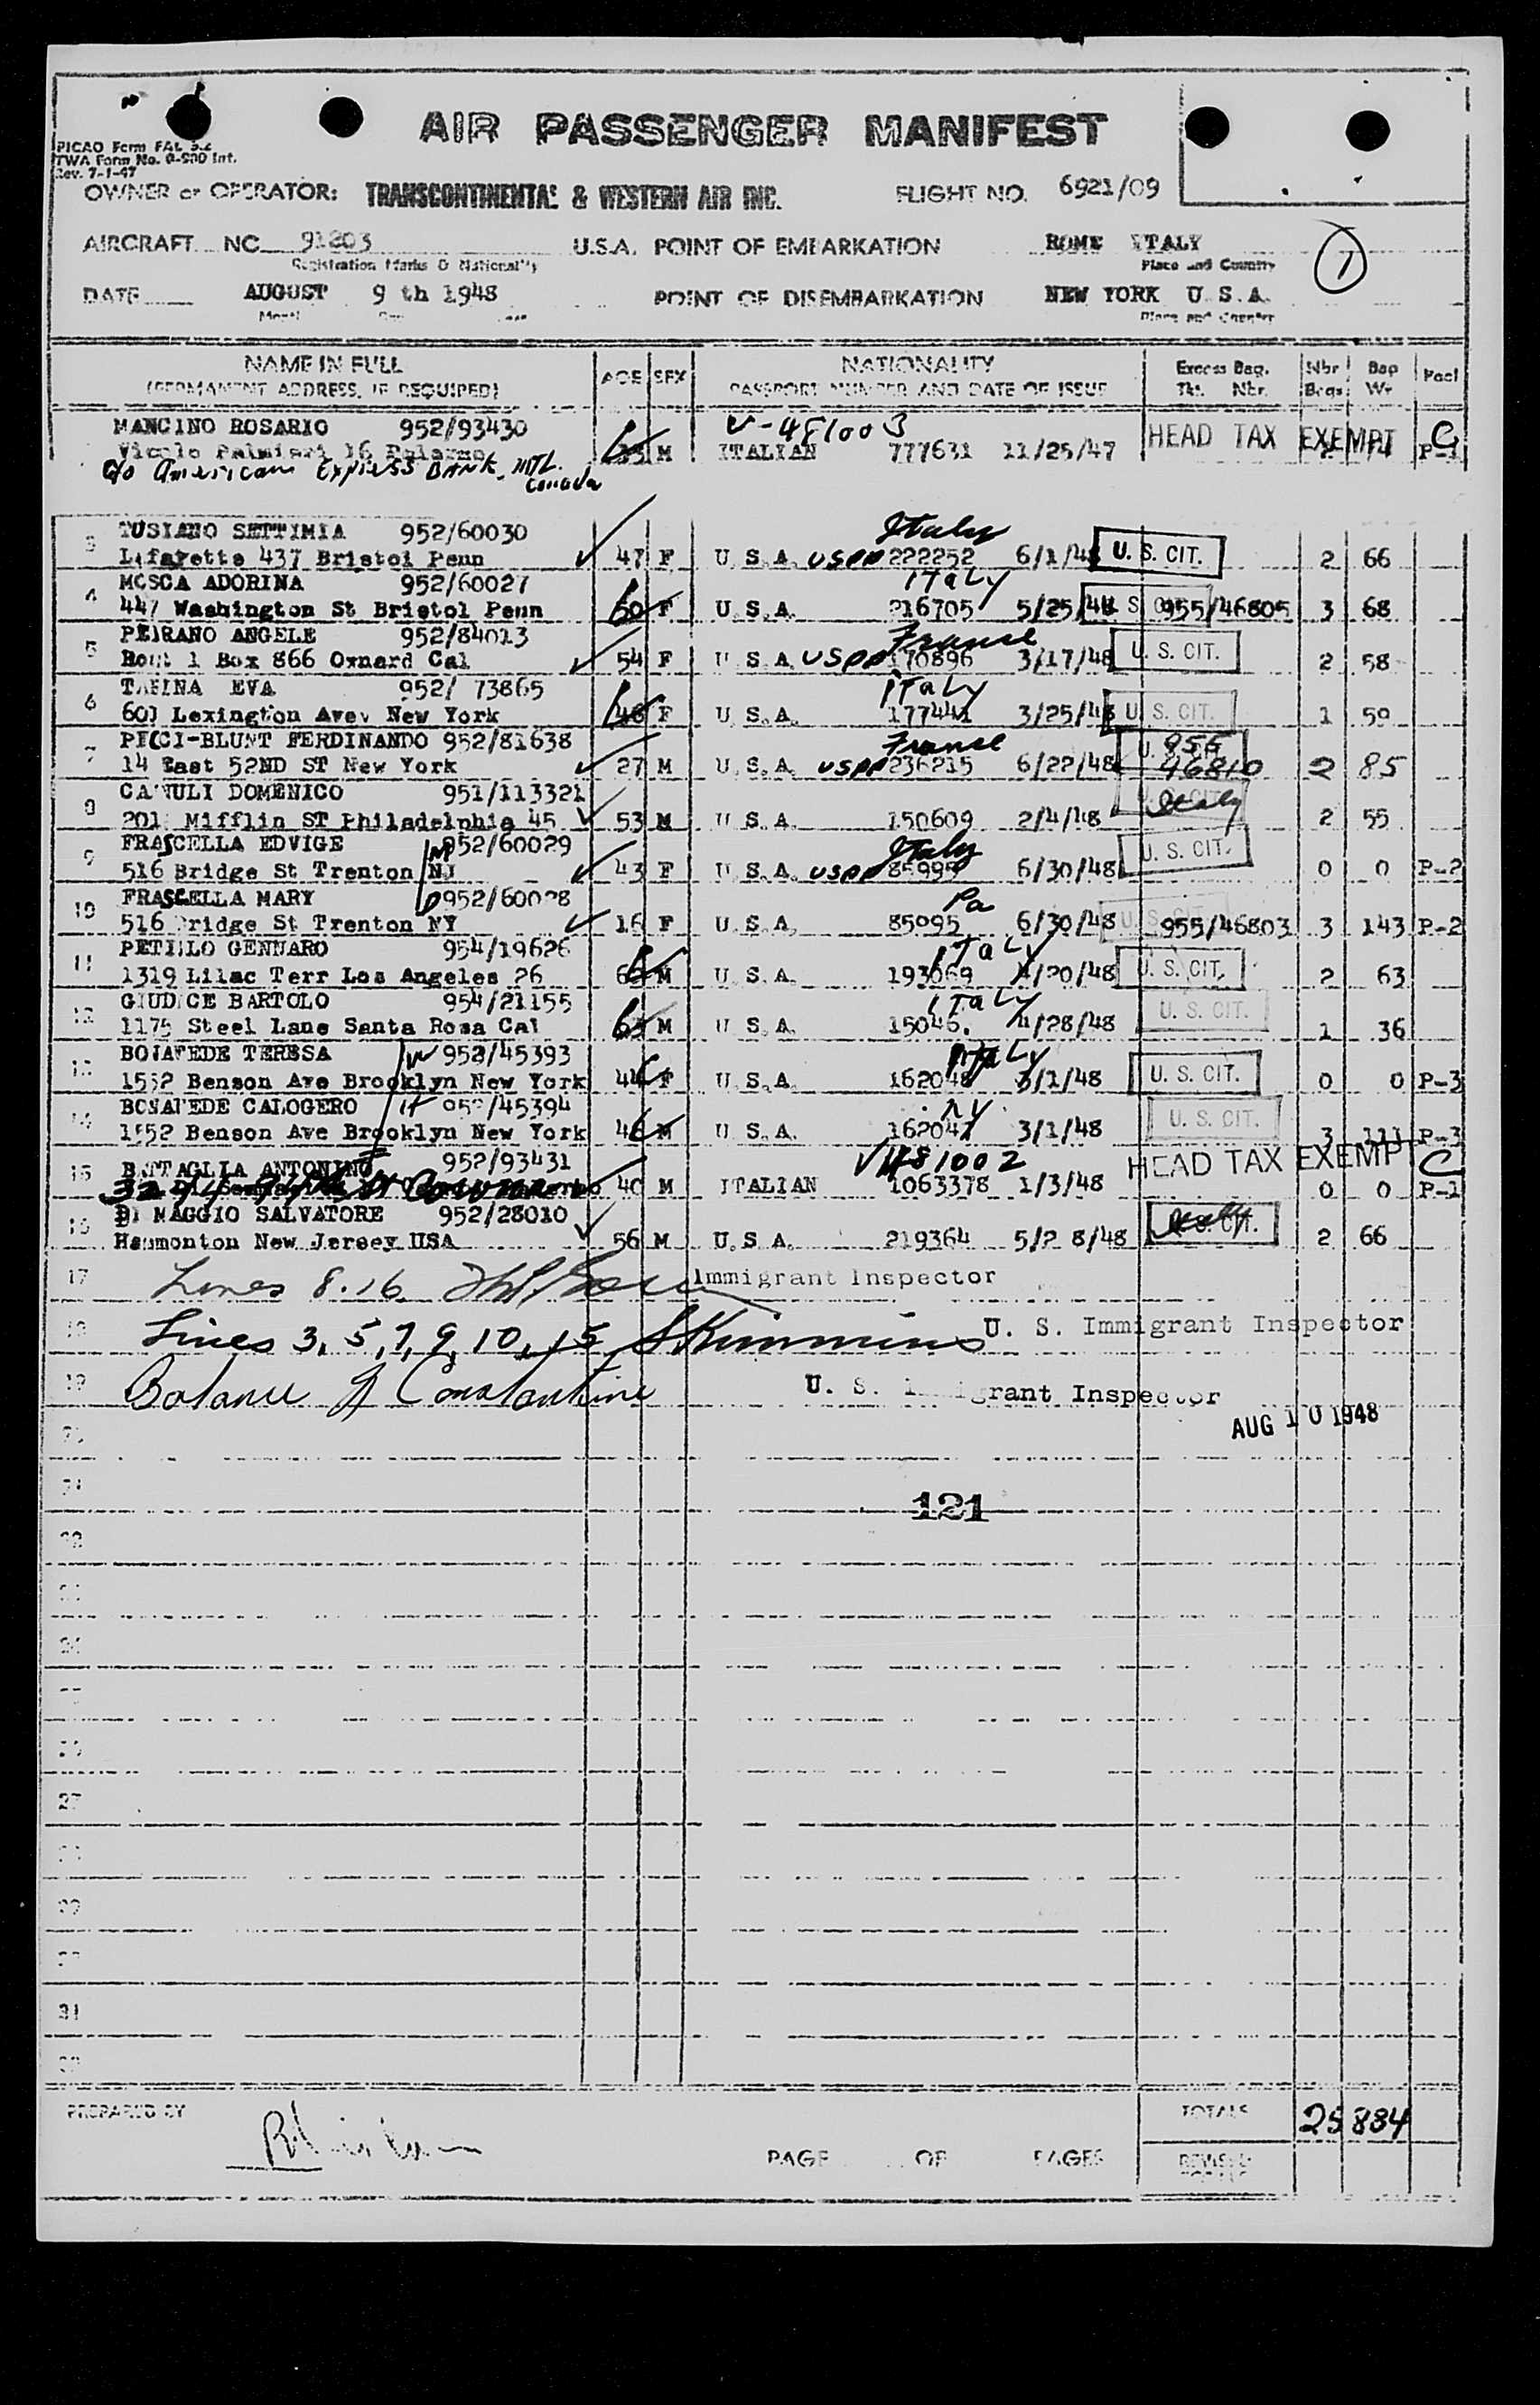 AIR PASSENGER MANIFEST
PICAO Form FAL 3.2
TWA Form No. 0-500 Int.
Rev. 7-1-47
OWNER or OPERATOR: TRANSCONTINENTAL & WESTERN AIR INC. FLIGHT NO. 6921/09
AIRCRAFT NC 91203 U.S.A. POINT OF EMBARKATION ROME ITALY
Registration Marks & Nationality Place and Country
1
DATE AUGUST 9 th 1948 POINT OF DISEMBARKATION NEW YORK U.S.A.
Month Day Place and Country
NAME IN FULL AGE SEX NATIONALITY Excess Bag. Nbr Bag Pool
(PERMANENT ADDRESS, IF REQUIRED) PASSPORT NUMBER AND DATE OF ISSUE Tkt. Nbr. Bags Wt
MANCINO ROSARIO 952/93430 V-481003 HEAD TAX EXEMPT C
Vicolo Palmieri 16 Palermo M ITALIAN 777631 11/25/47 P-1
c/o American Express BANK. MTL.
Canada
3 TUSIANO SETTIMIA 952/60030 Italy
Lafayette 437 Bristol Penn 47 F U.S.A. USPP 222252 6/1/48 U. S. CIT. 2 66
4 MOSCA ADORINA 952/60027 Italy
447 Washington St Bristol Penn 60 F U.S.A. 216705 5/25/48 955/46805 3 68
5 PEIRANO ANGELE 952/84013 France
Rout 1 Box 866 Oxnard Cal 54 F U.S.A. USPP 170896 3/17/48 U. S. CIT. 2 58
6 EVA 952/ 73865 Italy
Lexington Ave New York 46 F U.S.A. 177441 3/25/48 U. S. CIT. 1 59
7 PECCI-BLUNT FERDINANDO 952/81638 France 955
14 East 52ND ST New York 27 M U.S.A. USPP 236215 6/22/48 46810 2 85
8 DOMENICO 951/113321 U. S. CIT. Italy
Mifflin ST Philadelphia 45 53 M U.S.A. 150609 2/4/48 2 55
9 FRASCELLA EDVIGE M 952/60029 Italy
516 Bridge St Trenton NJ 43 F U.S.A. USPP 85999 6/30/48 U. S. CIT. 0 0 P-2
10 FRASCELLA MARY D 952/60028 Pa
516 Bridge St Trenton NY 16 F U.S.A. 85095 6/30/48 U. S. CIT. 955/46803 3 143 P-2
11 PETILLO GENNARO 954/19626 Italy
1319 Lilac Terr Los Angeles 26 M U.S.A. 193069 4/20/48 U. S. CIT. 2 63
12 GIUDICE BARTOLO 954/21155 Italy
1175 Steel Lane Santa Rosa Cal 63 M U.S.A. 15046 4/28/48 U. S. CIT. 1 36
13 BONAFEDE TERESA W 952/45393 Italy
1552 Benson Ave Brooklyn New York 44 F U.S.A. 162048 3/1/48 U. S. CIT. 0 0 P-3
14 BONAFEDE CALOGERO H 952/45394 NY
1552 Benson Ave Brooklyn New York 46 M U.S.A. 162047 3/1/48 U. S. CIT. 3 111 P-3
15 BATTAGLIA ANTONINO 952/93431 V481002 HEAD TAX EXEMPT C
40 M ITALIAN 1063378 1/3/48 0 0 P-1
16 DI MAGGIO SALVATORE 952/28010
Hammonton New Jersey USA 56 M U.S.A. 219364 5/2 8/48 Italy U. S. CIT. 2 66
17 Lines 8.16 Immigrant Inspector
18 Lines 3, 5, 7, 9, 10, 15 SKimmins U. S. Immigrant Inspector
19 Balance Constantine U. S. Immigrant Inspector
AUG 10 1948
121
27
31
PREPARED BY TOTALS 25 884
PAGE OF PAGES REVISED TOTALS